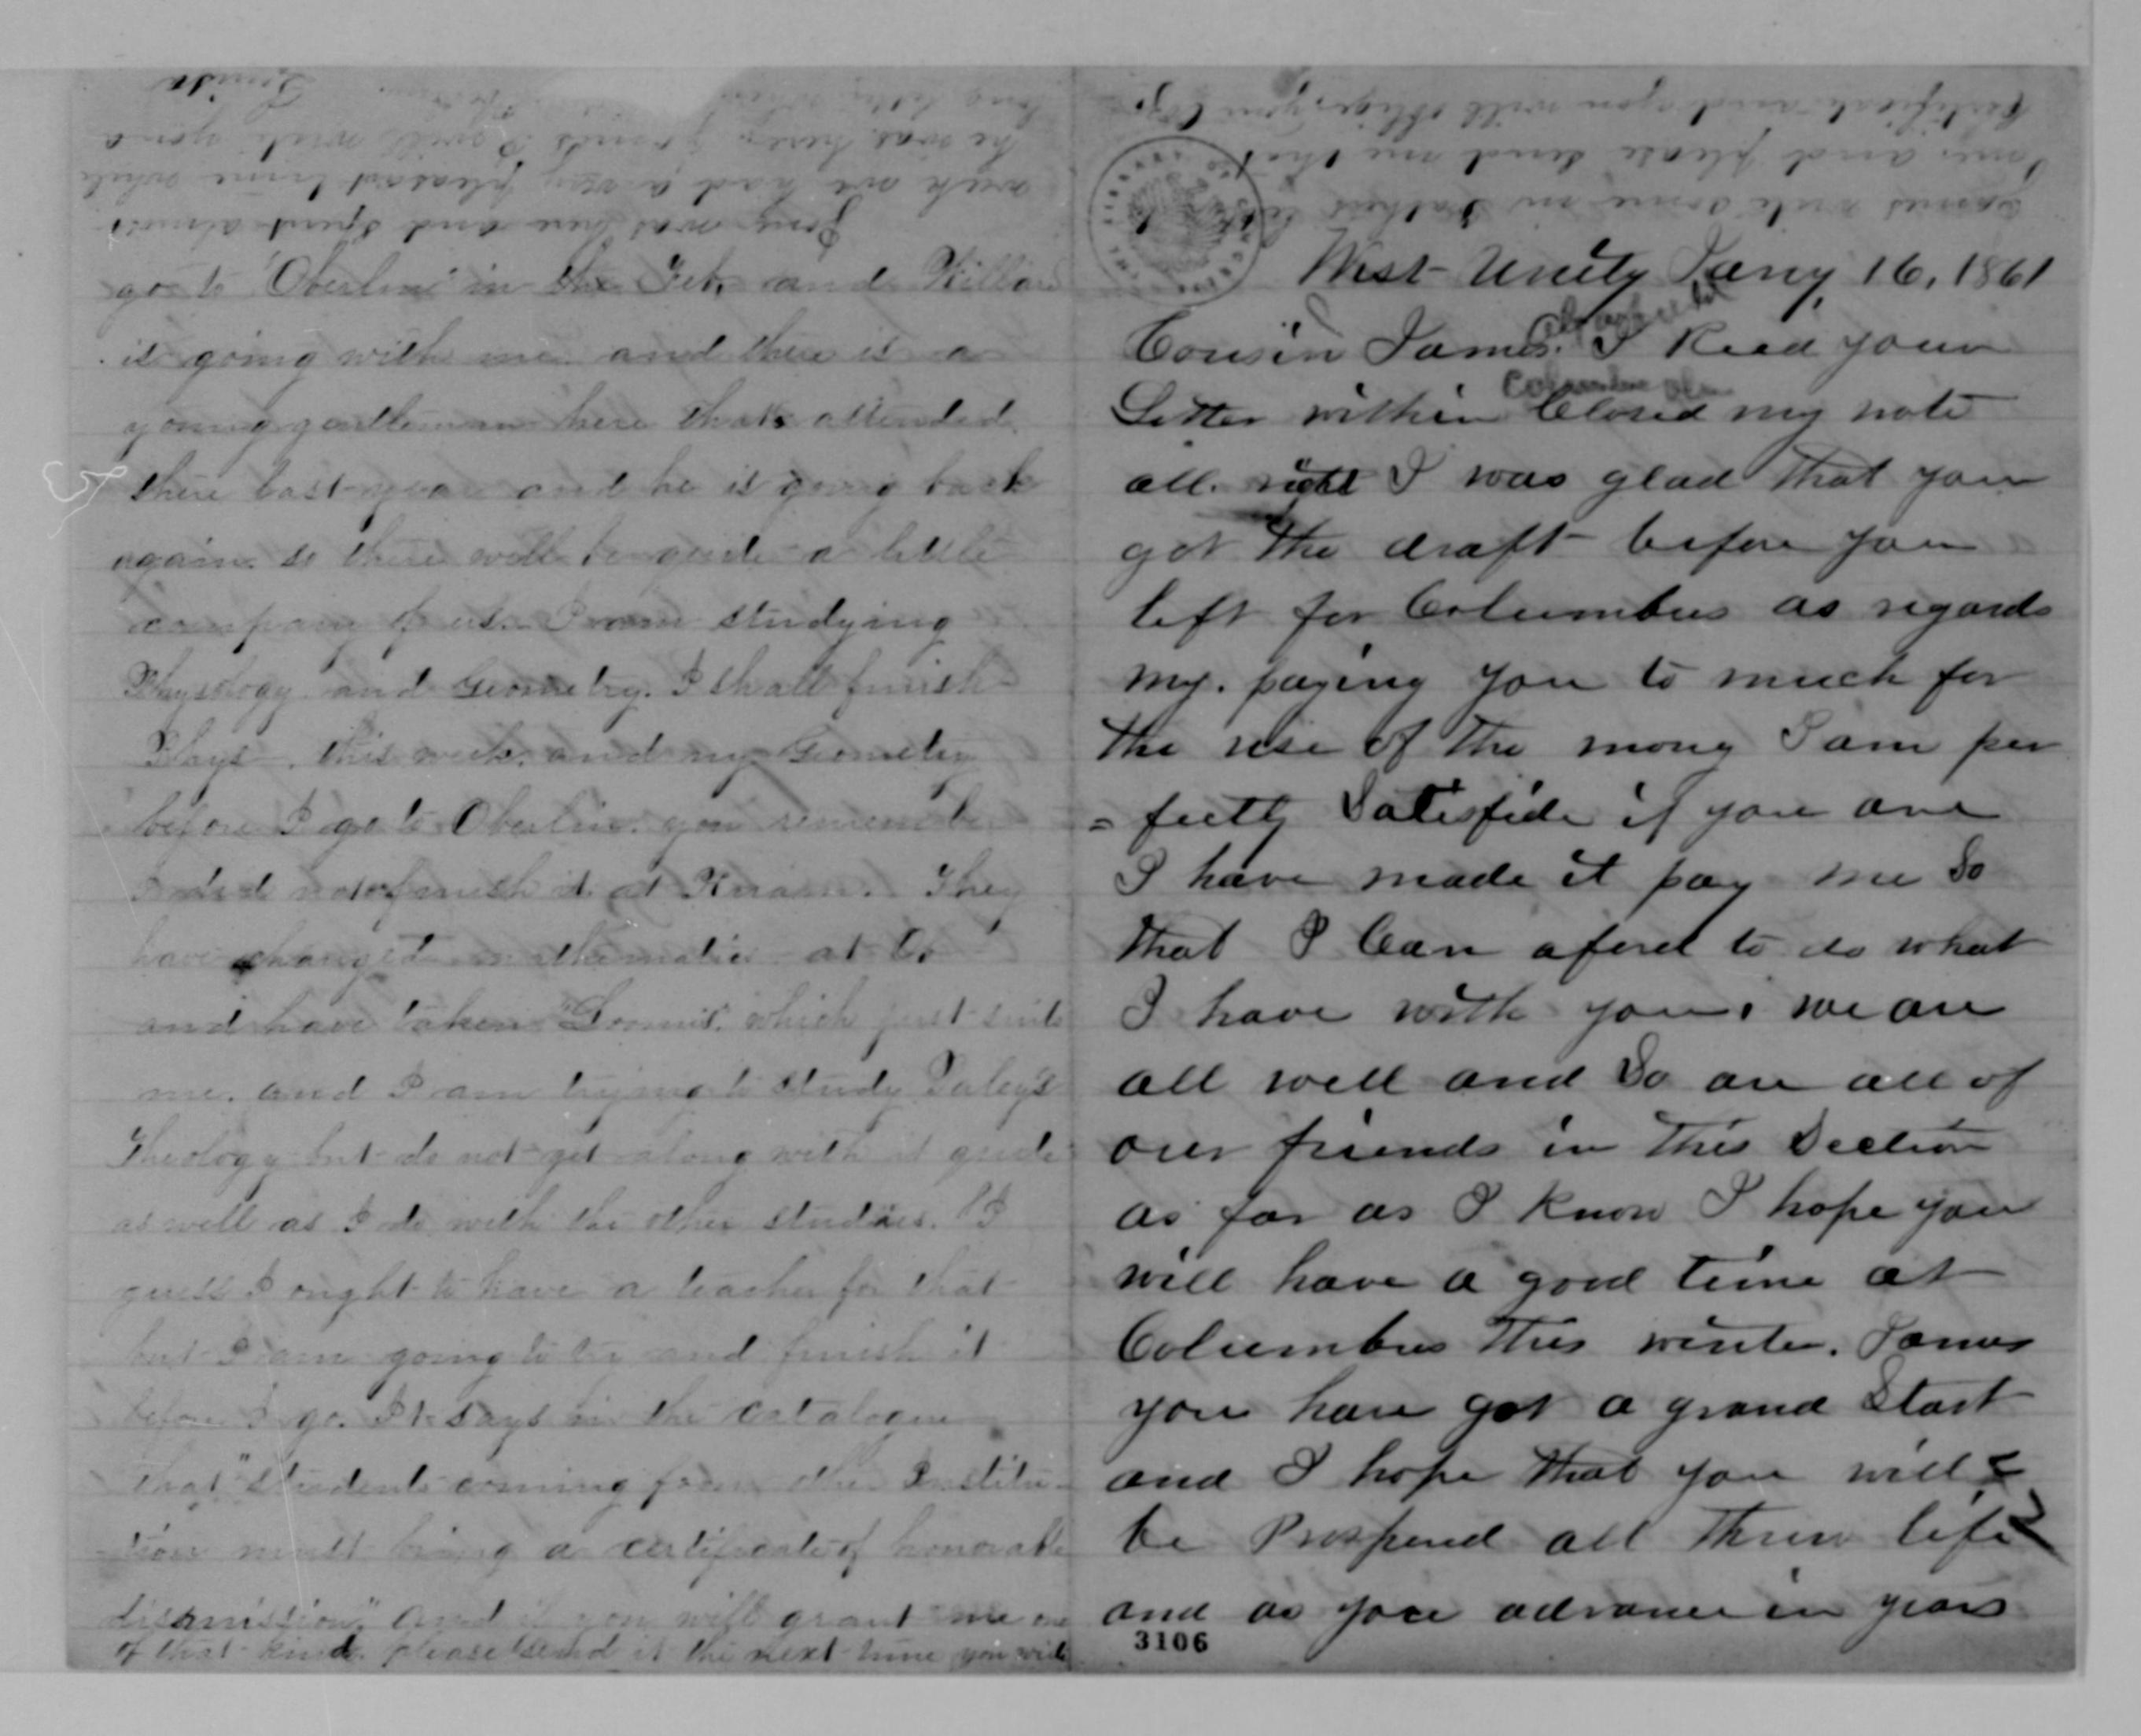 go to "Oberlin" in the Feb. and Willard
is going with me and there is a
young gentleman here thats attended
there last year and he is going back
again. so there will be quite a little
company of us. I am studying
Physiology and Geometry. I shall finish
Phys. this week, and my Geometry
before I go to Oberlin. you remember
I did not finish it at Hiram. They
have changed mathematics at O.
and have taken "Loomis" which just suits
me. and I am trying to study Paley's
Theology but do not get along with it quite
as well as I do with the other studies. I
guess I ought to have a teacher for that
but I am going to try and finish it
before I go. It says in the catalogue
that "students coming from other Institu-
tion must bring a certificate of honorable
dismission," and if you will grant me one
of that kind. please send it the next time you write
Jany was here and spent almost
week we had a very pleasant time while
he was here, James I will write you a
long letter when
Louisa
James write some in Fathers letter
and please send me that
Certificate and you will oblige your Coz.
West Unity Jany 16, 1861
Cousin James. I Recd your
Letter within Closed my note
all. right I was glad that you
got the draft before you
left for Columbus as regards
my. paying you to much for
the use of the mony I am per
= fectly Satisfide if you are
I have made it pay me So
that I Can aford to do what
I have with you. we are
all well and So are all of
our friends in this Section
as far as I Know I hope you
will have a good time at
Columbus this winter. James
you have got a grand Start
and I hope that you will
be Prospered all threw life
and as you advance in years
3106